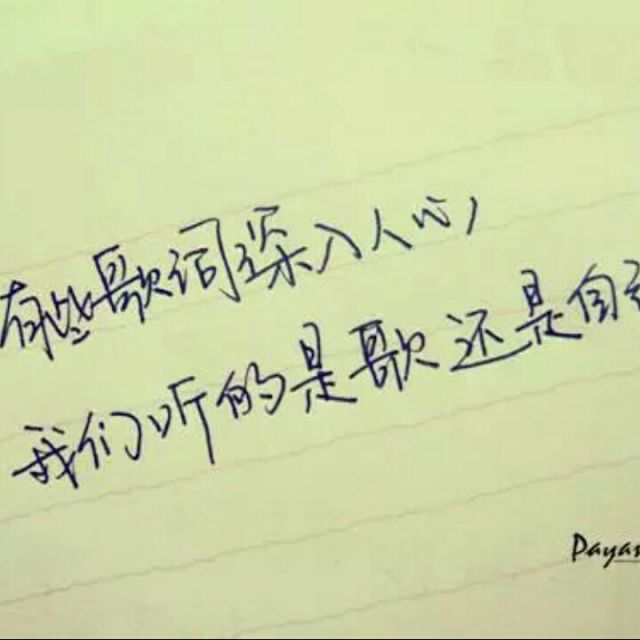 有些歌词深入人心,
我们听的是歌还是自
Payan